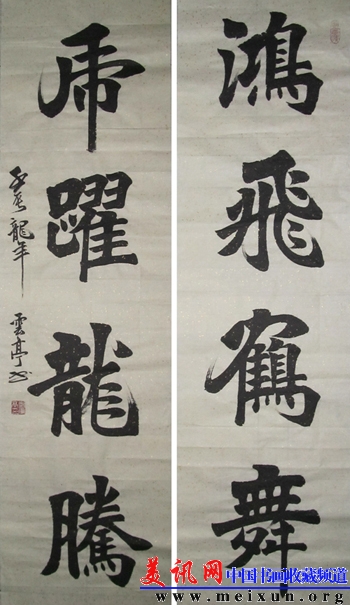 鴻飛鶴舞
虎躍龍騰
壬辰龍年
雲亭书
美讯网
中国书画收藏频道
http://www.meixun.org